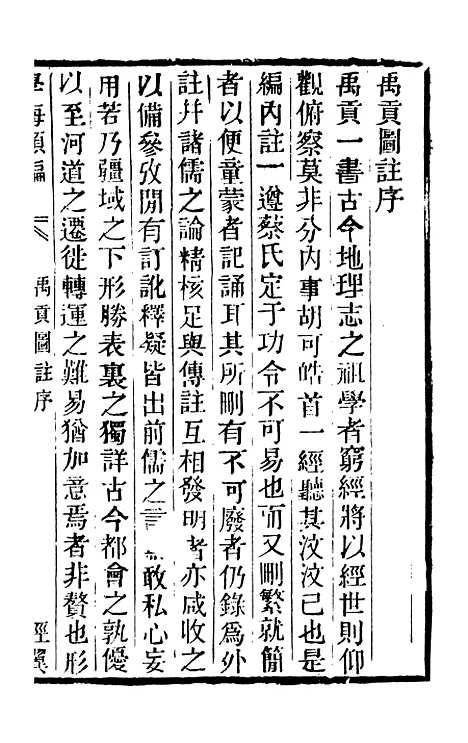 禹貢圖註序
禹貢一書古今地理志之祖學者窮經將以經世則仰
觀俯察莫非分內事胡可皓首一經聽其汶汶已也是
編內註一遵蔡氏定于功令不可易也而又刪繁就簡
者以便童蒙者記誦耳其所刪有不可廢者仍錄爲外
註幷諸儒之論精核足與傳註互相發明者亦咸收之
以備參攷閒有訂訛釋疑皆出前儒之言敢私心妄
用若乃疆域之下形勝表裏之獨詳古今都會之孰優
以至河道之遷徙轉運之難易猶加意焉者非贅也形
學海類編
禹貢圖註序
經翼